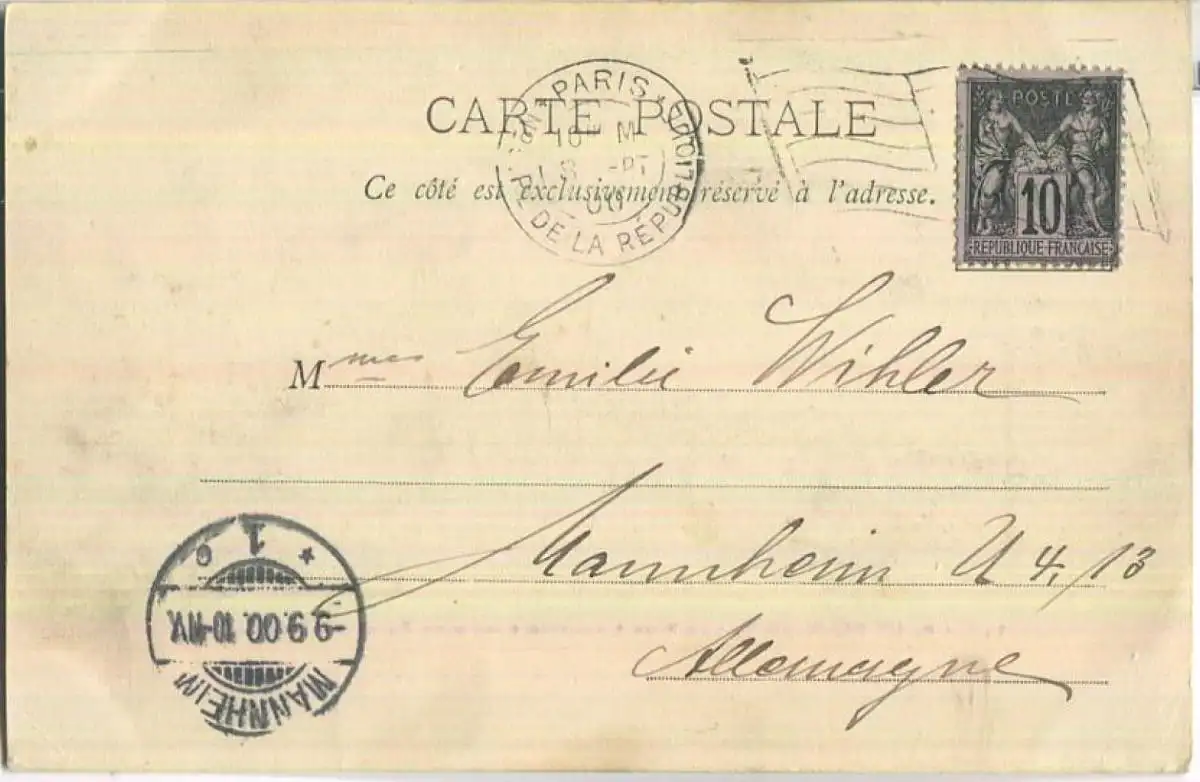 CARTE POSTALE
Ce côté est exclusivement réservé à l'adresse.
PARIS
DE LA RÉPUB
00
POSTE
10
RÉPUBLIQUE FRANÇAISE
Mmes Emilie Wihler
Mannheim U 4, 13
Allemagne
1 c
9.9.00. 10-11V.
MANNHEIM